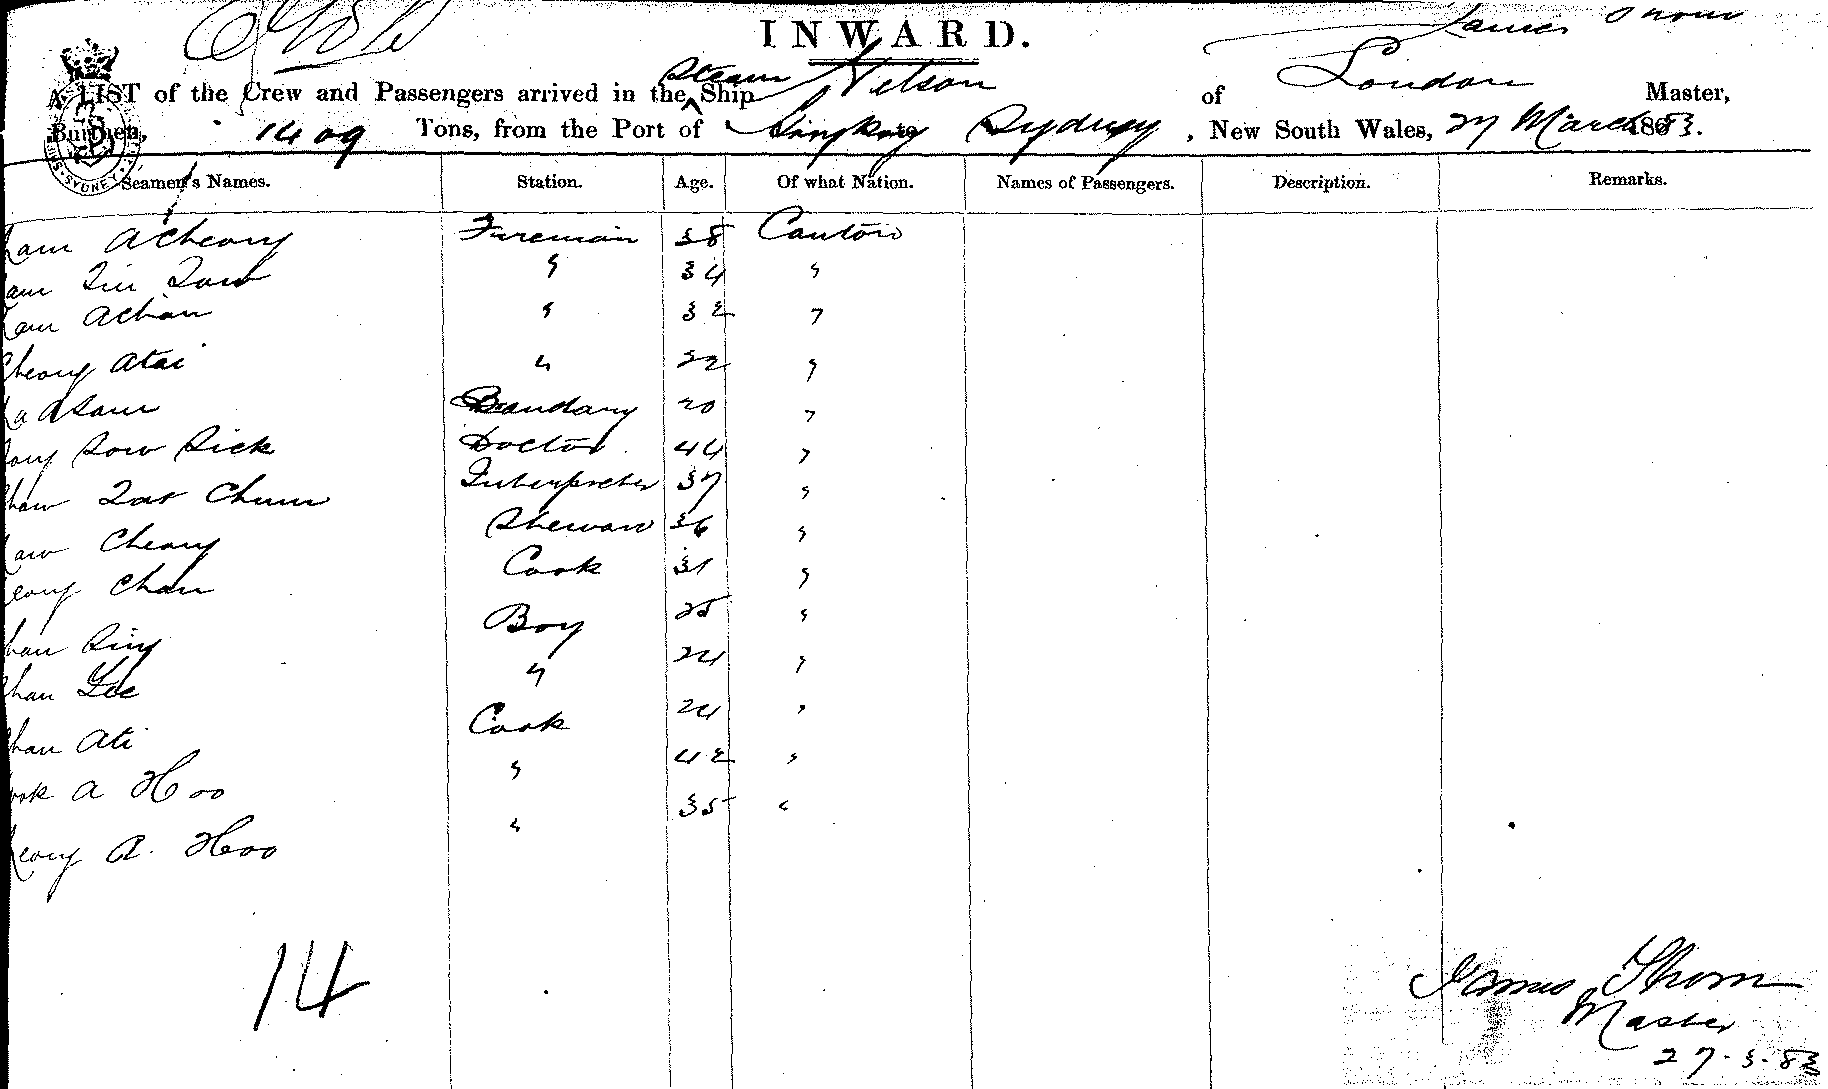 INWARD.
James Thom
A LIST of the Crew and Passengers arrived in the Steam Ship Nelson of London Master,
Burthen, 1409 Tons, from the Port of Sydney, New South Wales, 27 March 1883.
Seamen's Names. Station. Age. Of what Nation. Names of Passengers. Description. Remarks.
Lam Acheong Fireman 38 Canton
Lam " 34 "
Lam Achan " 32 "
Cheong Atai " 22 "
Asam Bandary 20 "
Sow Sick Doctor 44 "
Chun Interpreter 37 "
Cheong Steward 36 "
Chan Cook 31 "
Chan Sing Boy 25 "
Chan Yee " 24 "
Chan Ati Cook 24 "
A Hoo " 42 "
A. Hoo " 35 "
14
James Thom
Master
27.3.83